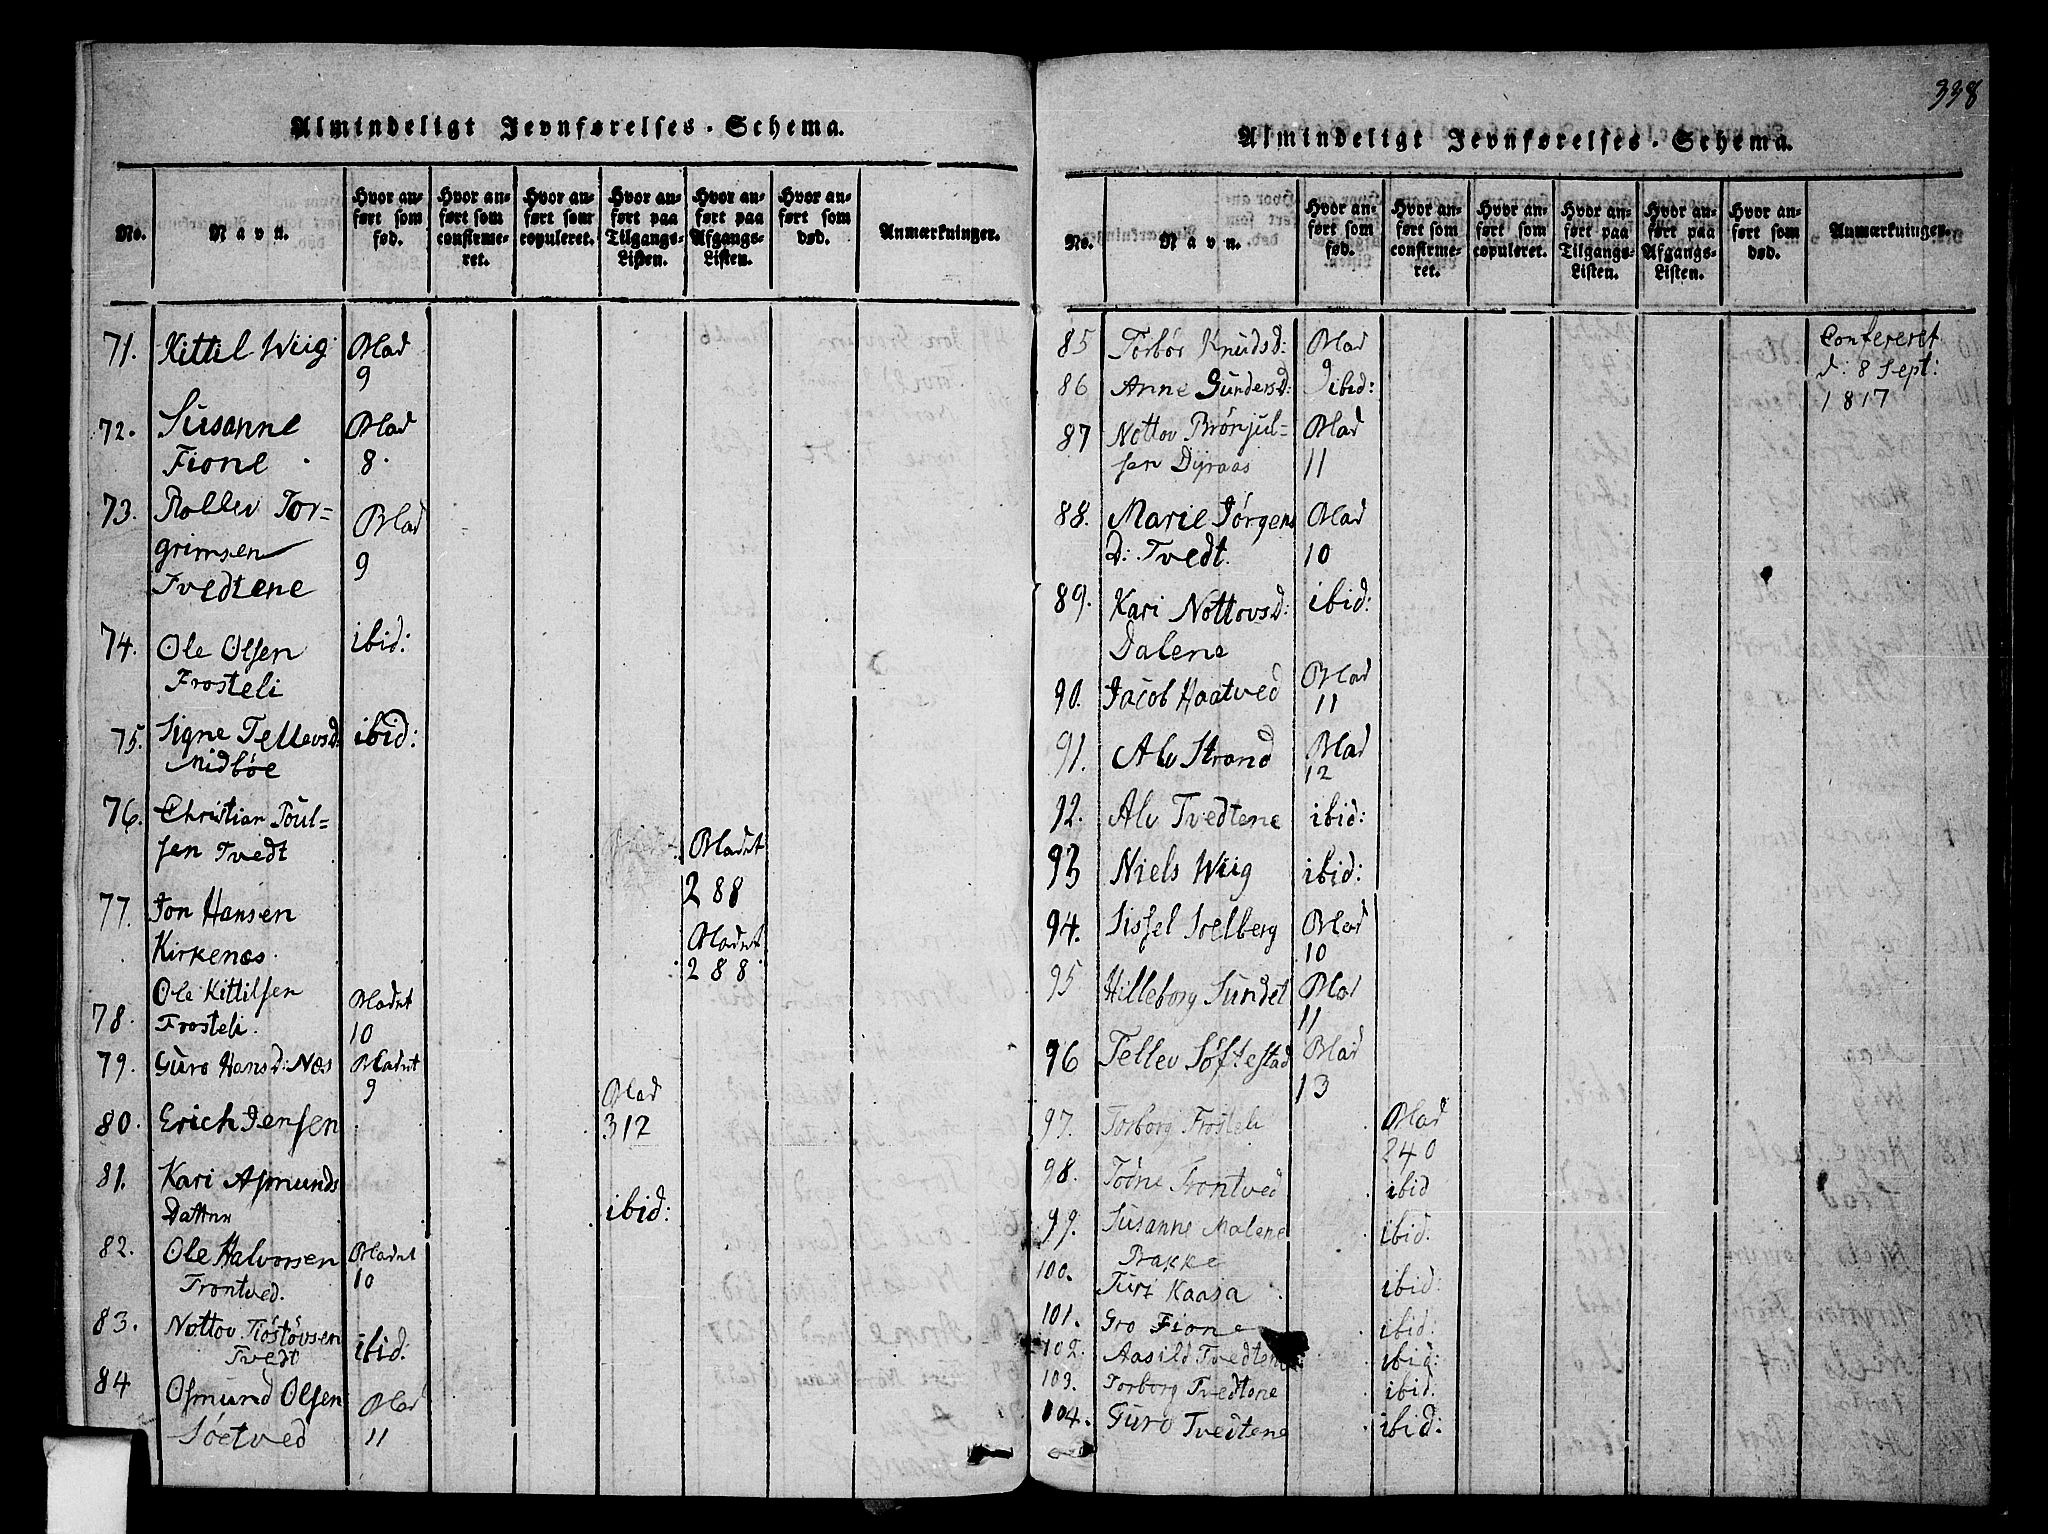 Almindeligt Jevnførelses-Schema.
No.
Navn.
Hvor an-
ført som
fød.
Hvor an-
ført som
confirme-
ret.
Hvor an-
ført som
copuleret.
Hvor an-
ført paa
Tilgangs-
Listen.
Hvor an-
ført paa
Afgangs-
Listen.
Hvor an-
ført som
død.
Anmærkninger.
71. Kittil Wiig Blad
9
72. Susanne Blad
Fione 8.
73. Rollev Tor=
grimsen Blad
Tvedtene 9
74. Ole Olsen ibid:
Frosteli
75. Signe Tellevsd: ibid:
Midbøe
76. Christian Poul=
sen Tvedt Bladet
288
77. Jon Hansen
Kirkenæs. Bladet
288.
Ole Kittilsen Bladet
78. Frosteli. 10
79. Guro Hansd: Næs Bladet
9
80. Erich Jensen Blad
312
81. Kari Asmunds
Datter ibid:
82. Ole Halvorsen Bladet
Frontved. 10
83. Nottov Tiøstøvsen
Tvedt ibid:
84 Osmund Olsen Blad
Søetved 11
338
Almindeligt Jevnførelses-Schema.
No.
Navn.
Hvor an-
ført som
fød.
Hvor an-
ført som
confirme-
ret.
Hvor an-
ført som
copuleret.
Hvor an-
ført paa
Tilgangs-
Listen.
Hvor an-
ført paa
Afgangs-
Listen.
Hvor an-
ført som
død.
Anmærkninger.
85 Torbør Knudsd: Blad Confereret
9 d: 8 Sept:
86 Anne Gundersd: ibid: 1817
87 Nottov Brønjul= Blad
sen Dyraas 11
88. Marie Jørgens Blad
D: Tvedt. 10
89. Kari Nottovsd: ibid:
Dalene
90. Jacob Haatved Blad
11
91. Alv Strand Blad
12
92. Alv Tvedtene ibid:
93 Niels Wiig ibid:
94. Sissel Soelberg Blad
10
95 Hilleborg Sundet Blad
11
96 Tellev Søftestad Blad
13
97. Torborg Frosteli Blad
240
98. Todne Frontved ibid
99. Susanne Malene ibid.
Bakke
100. Turi Kaasa ibid:
101. Gro Fione ibid:
102. Aasild Tvedtene ibid:
103. Torborg Tvedtene ibid.
104. Guro Tvedtene ibid: